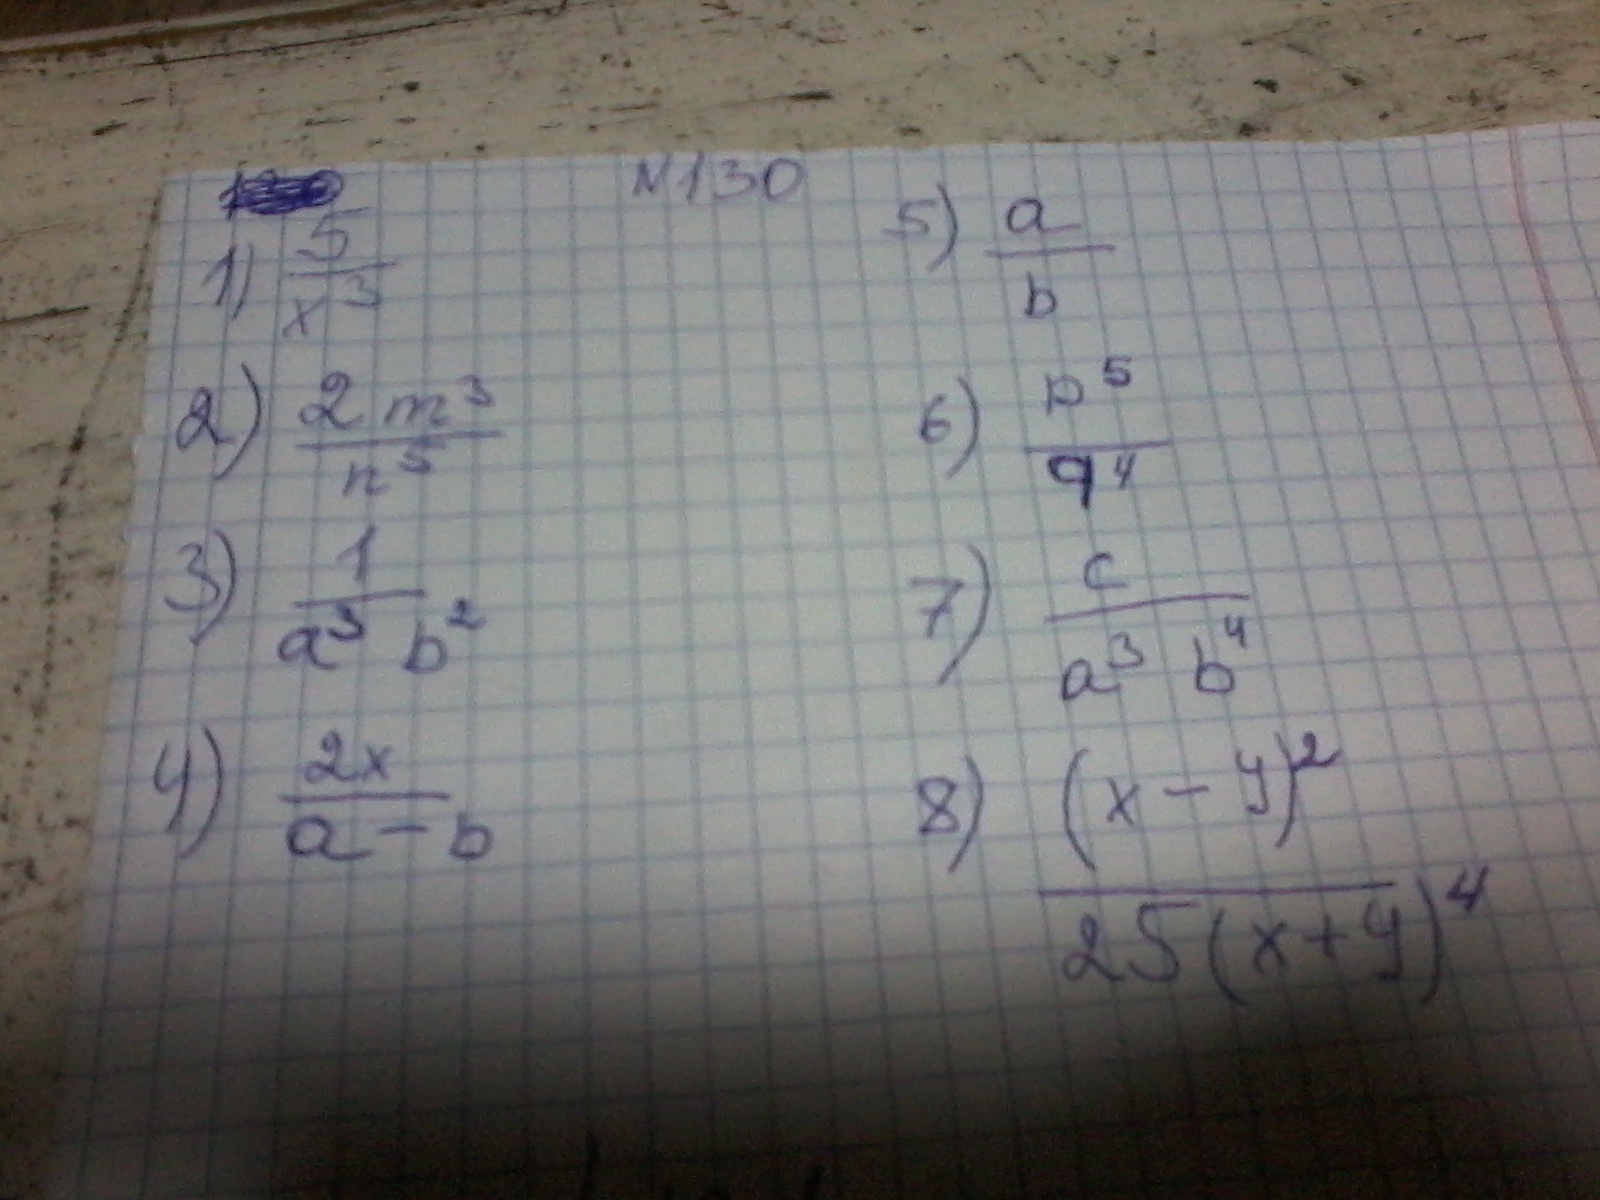 N130
1) 5/x³
2) 2m³/n⁵
3) 1/a³ b²
4) 2x/a - b
5) a/b
6) p⁵/q⁴
7) c/a³ b⁴
8) (x - y)²/25(x+y)⁴